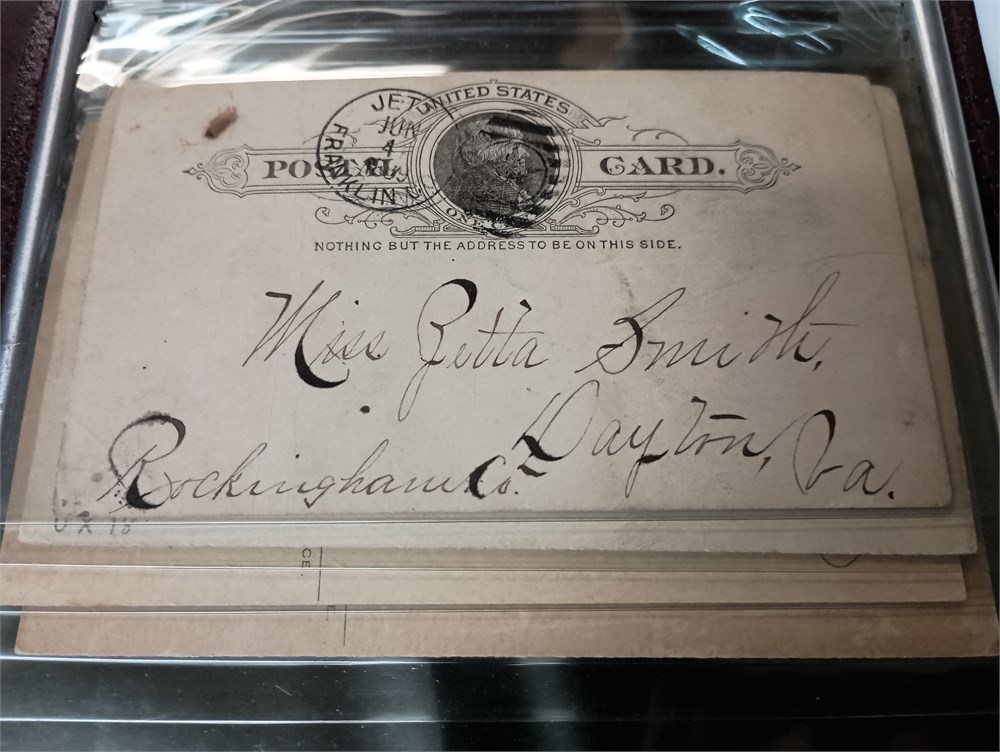 UNITED STATES
POSTAL CARD.
JUN
4
FRANKLIN
ONE
NOTHING BUT THE ADDRESS TO BE ON THIS SIDE.
Miss Zetta Smith,
Dayton, Va.
Rockingham Co.
UX 18
CE.
E.